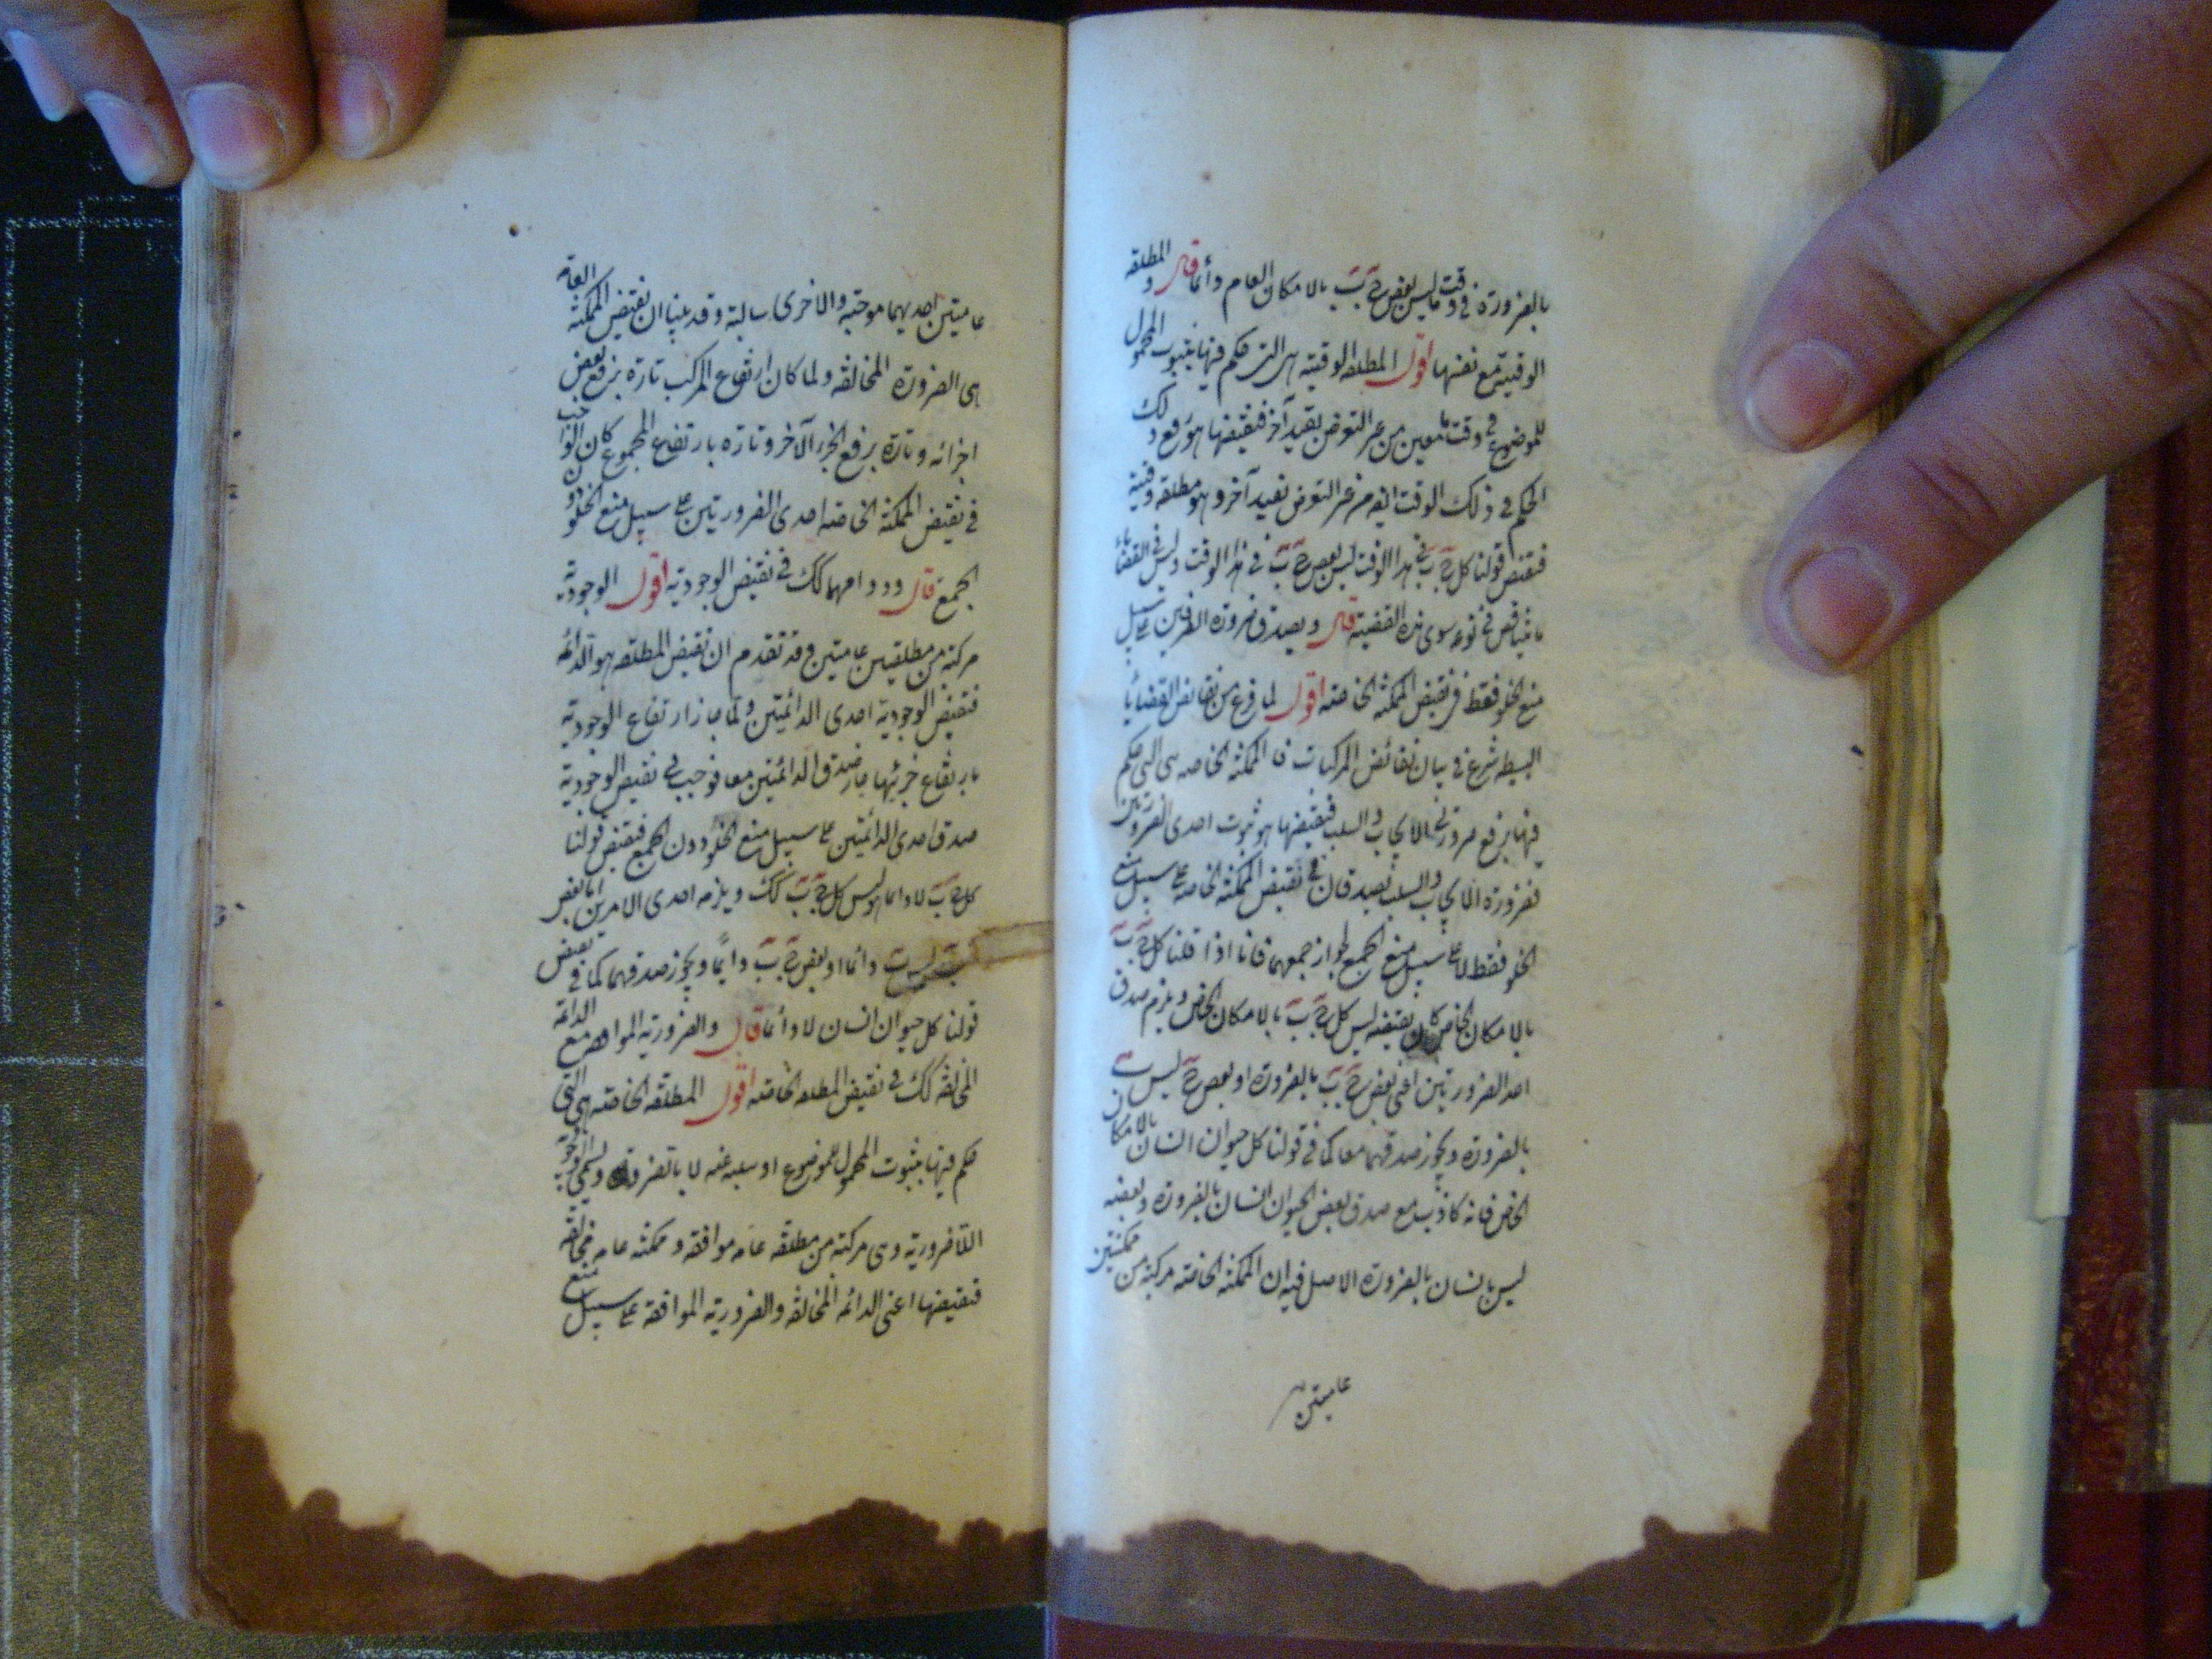 بالضرورة في وقت ما ليس بعض ج ب بالامكان العام دائما قال والمطلقة
الوقتية مع نفسها اقول المطلقة الوقتية هى التى حكم فيها بثبوت المحمول
للموضوع في وقت معين من غير التعرض بقيد آخر فنقيضها هو رفع ذلك
الحكم في ذلك الوقت ايضا من غير التعرض بقيد آخر وهو مطلقة وقتية
فنقيض قولنا كل ج ب في هذا الوقت ليس بعض ج ب في هذا الوقت وليس في القضايا
ما يناقض في نوعه سوى هذه القضية قال ويصدق ضرورة الطرفين على سبيل
منع الخلو فقط في نقيض الممكنة الخاصة اقول لما فرغ من نقائض القضايا
البسيطة شرع في بيان نقائض المركبات فالممكنة الخاصة هى التى حكم
فيها برفع ضرورتى الايجاب والسلب فنقيضها هو ثبوت احدى الضرورتين
فضرورة الايجاب والسلب يصدقان في نقيض الممكنة الخاصة على سبيل منع
الخلو فقط لا على سبيل منع الجمع لجواز جمعهما فانا اذا قلنا كل ج ب
بالامكان الخاص كان نقيضه ليس كل ج ب بالامكان الخاص ويلزم صدق
احد الضرورتين اعنى بعض ج ب بالضرورة او بعض ج ليس ب
بالضرورة ويجوز صدقهما معا كما في قولنا كل حيوان انسان بالامكان
الخاص فانه كاذب مع صدق بعض الحيوان انسان بالضرورة وبعضه
ليس بانسان بالضرورة الاصل فيه ان الممكنة الخاصة مركبة من ممكنتين
عامتين
عامتين احديهما موجبة والاخرى سالبة وقد بينا ان نقيض الممكنة العامة
هى الضرورة المخالفة ولما كان ارتفاع المركب تارة برفع بعض
اجزائه وتارة برفع الجزء الآخر وتارة بارتفاع المجموع كان الواجب
في نقيض الممكنة الخاصة احدى الضرورتين على سبيل منع الخلو دون
الجمع قال ودوامهما كك في نقيض الوجودية اقول الوجودية
مركبة من مطلقتين عامتين وقد تقدم ان نقيض المطلقة هو الدائمة
فنقيض الوجودية احدى الدائمتين ولما جاز ارتفاع الوجودية
بارتفاع جزئيها جاز صدق الدائمتين معا فوجب في نقيض الوجودية
صدق احدى الدائمتين على سبيل منع الخلو دون الجمع فنقيض قولنا
كل ج ب لا دائما هو ليس كل ج ب كك ويلزمه احدى الامرين اما بعض
ج ليس ب دائما او بعض ج ب دايما ويجوز صدقهما كما في نقيض
قولنا كل حيوان انسان لا دائما قال والضرورية الموافقة مع الدائمة
المخالفة كك في نقيض المطلقة الخاصة اقول المطلقة الخاصة هى التى
حكم فيها بثبوت المحمول للموضوع او سلبه عنه لا بالضرورة وتسمى الوجودية
اللاضرورية وهى مركبة من مطلقة عامة موافقة وممكنة عامة مخالفة
فنقيضها اعنى الدائمة المخالفة والضرورية الموافقة على سبيل منع